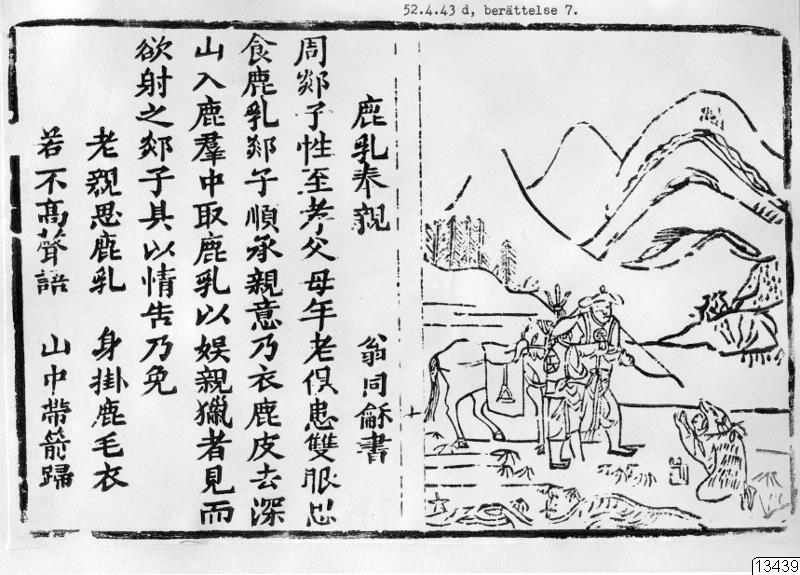 52.4.43 d, berättelse 7.
鹿乳奉親
翁同龢書
周郯子性至孝父母年老俱患雙眼思
食鹿乳郯子順承親意乃衣鹿皮去深
山入鹿羣中取鹿乳以娯親獵者見而
欲射之郯子具以情告乃免
老親思鹿乳 身掛鹿毛衣
若不高聲語 山中帶箭歸
13439